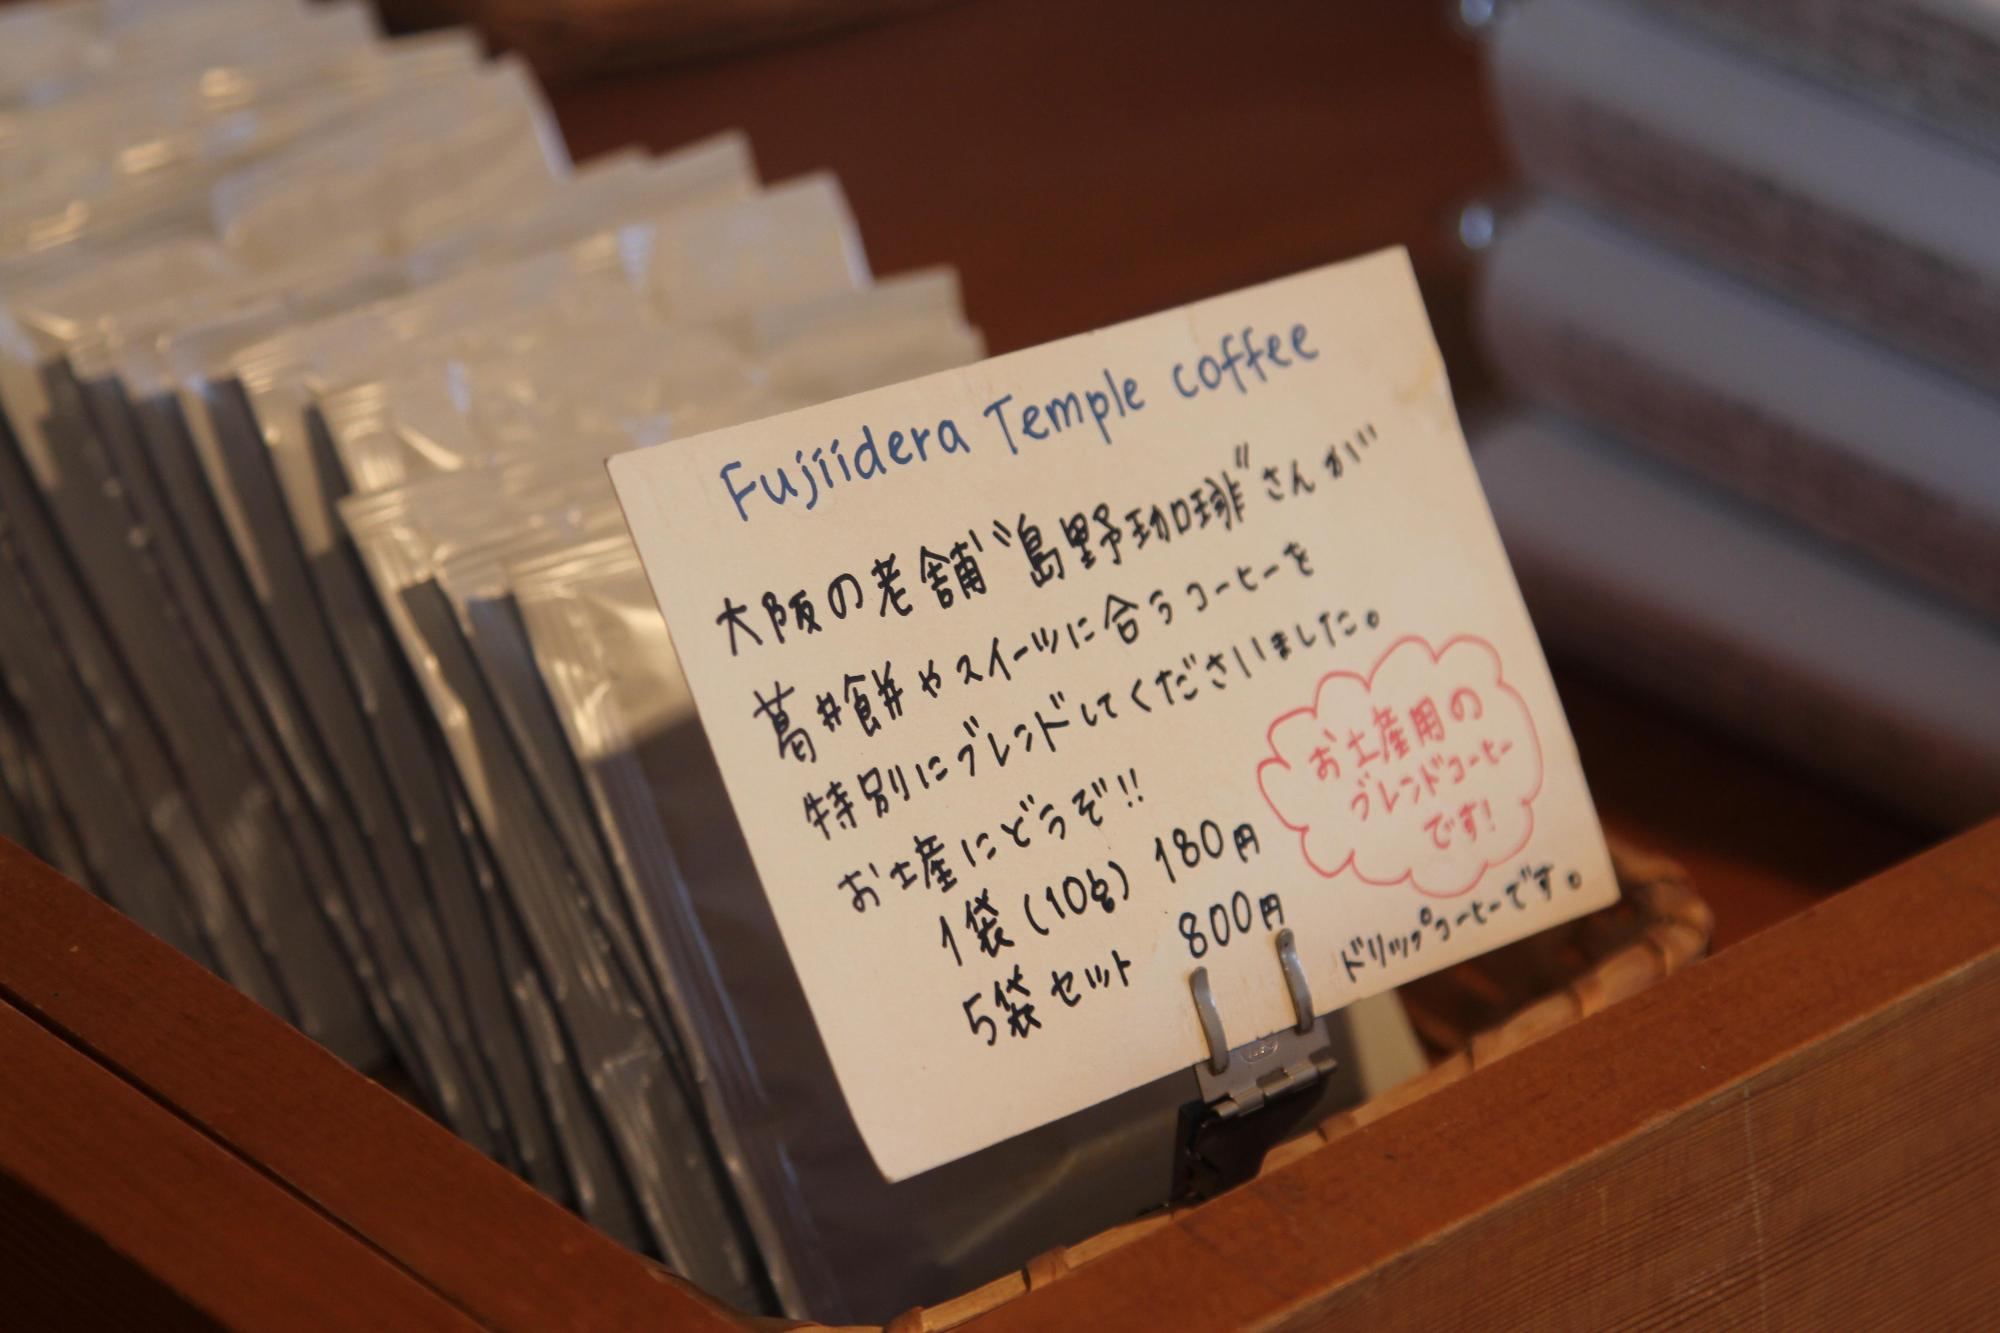 Fujiidera Temple coffee
大阪の老舗"島野珈琲"さんが
葛井餅やスイーツに合うコーヒーを
特別にブレンドしてくださいました。
お土産にどうぞ!!
1袋(10g) 180円
5袋セット 800円
お土産用の
ブレンドコーヒー
です!
ドリップコーヒーです。